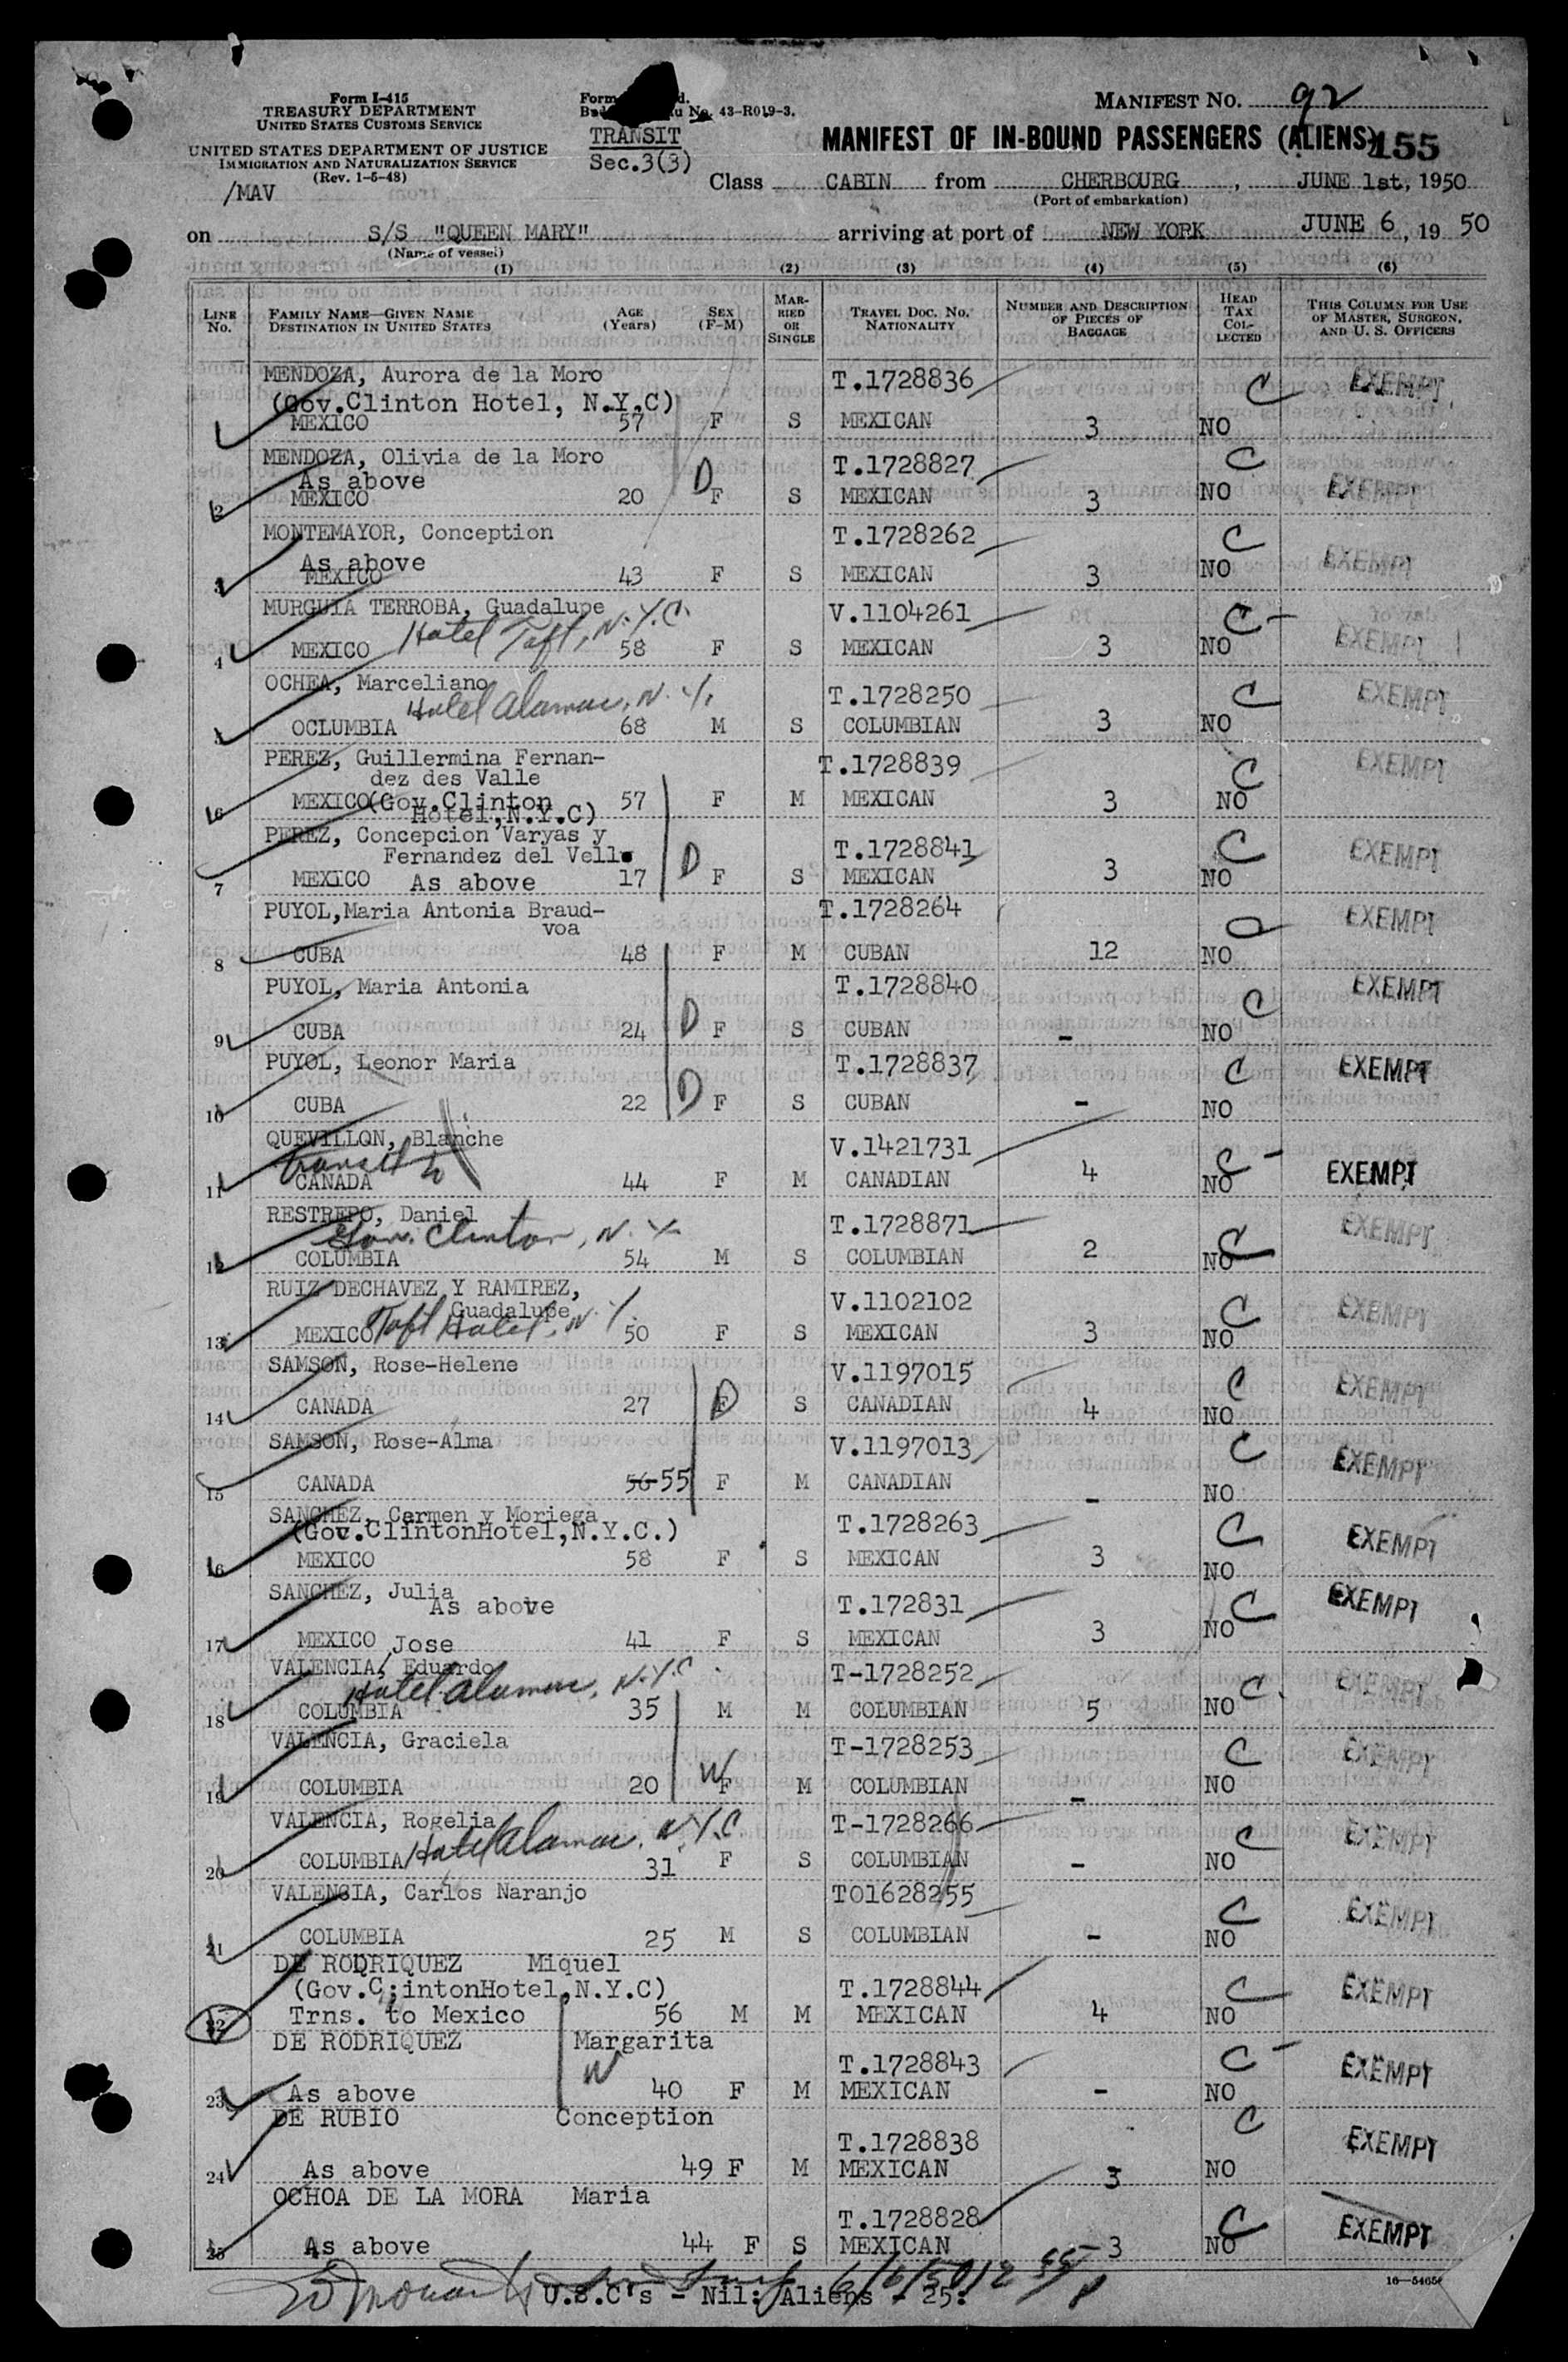 Form I-415
TREASURY DEPARTMENT
UNITED STATES CUSTOMS SERVICE
UNITED STATES DEPARTMENT OF JUSTICE
IMMIGRATION AND NATURALIZATION SERVICE
(Rev. 1-5-48)
/MAV
Form
No. 43-R019-3.
TRANSIT
Sec.3(3)
MANIFEST NO. 92
MANIFEST OF IN-BOUND PASSENGERS (ALIENS) 155
Class CABIN from CHERBOURG, JUNE 1st, 1950
(Port of embarkation)
on S/S "QUEEN MARY" arriving at port of NEW YORK JUNE 6, 19 50
(Name of vessel)
(1) (2) (3) (4) (5) (6)
LINE No. FAMILY NAME—GIVEN NAME DESTINATION IN UNITED STATES AGE (Years) SEX (F-M) MARRIED OR SINGLE TRAVEL DOC. NO. NATIONALITY NUMBER AND DESCRIPTION OF PIECES OF BAGGAGE HEAD TAX COLLECTED THIS COLUMN FOR USE OF MASTER, SURGEON, AND U. S. OFFICERS
MENDOZA, Aurora de la Moro T.1728836 C EXEMPT
(Gov.Clinton Hotel, N.Y.C)
MEXICO 57 F S MEXICAN 3 NO
MENDOZA, Olivia de la Moro T.1728827 C
As above D
2 MEXICO 20 F S MEXICAN 3 NO EXEMPT
MONTEMAYOR, Conception T.1728262 C
As above EXEMPT
3 MEXICO 43 F S MEXICAN 3 NO
MURGUIA TERROBA, Guadalupe V.1104261 C
Hotel Taft, N.Y.C.
4 MEXICO 58 F S MEXICAN 3 NO EXEMPT
OCHEA, Marceliano T.1728250 C EXEMPT
Hotel Alamac, N.Y.
5 OCLUMBIA 68 M S COLUMBIAN 3 NO
PEREZ, Guillermina Fernan- T.1728839 C EXEMPT
dez des Valle
6 MEXICO(Gov.Clinton 57 F M MEXICAN 3 NO
Hotel,N.Y.C)
PEREZ, Concepcion Varyas y T.1728841 C EXEMPT
Fernandez del Velle D
7 MEXICO As above 17 F S MEXICAN 3 NO
PUYOL,Maria Antonia Braud- T.1728264 C EXEMPT
voa
8 CUBA 48 F M CUBAN 12 NO
PUYOL, Maria Antonia T.1728840 C EXEMPT
9 CUBA 24 D F S CUBAN - NO
PUYOL, Leonor Maria T.1728837 C EXEMPT
10 CUBA 22 D F S CUBAN - NO
QUEVILLON, Blanche V.1421731 C
Transit
11 CANADA 44 F M CANADIAN 4 NO EXEMPT
RESTREPO, Daniel T.1728871 C EXEMPT
Gov. Clinton, N.Y.
12 COLUMBIA 54 M S COLUMBIAN 2 NO
RUIZ DECHAVEZ Y RAMIREZ, V.1102102 C EXEMPT
Guadalupe
13 MEXICO Taft Hotel, N.Y. 50 F S MEXICAN 3 NO
SAMSON, Rose-Helene V.1197015 C EXEMPT
14 CANADA 27 F D S CANADIAN 4 NO
SAMSON, Rose-Alma V.1197013 C EXEMPT
15 CANADA 56-55 F M CANADIAN - NO
SANCHEZ, Carmen y Moriega T.1728263 C EXEMPT
(Gov.ClintonHotel,N.Y.C.)
16 MEXICO 58 F S MEXICAN 3 NO
SANCHEZ, Julia T.172831 C EXEMPT
As above
17 MEXICO 41 F S MEXICAN 3 NO
Jose
VALENCIA, Eduardo T-1728252 C EXEMPT
Hotel Alamac, N.Y.C
18 COLUMBIA 35 M M COLUMBIAN 5 NO
VALENCIA, Graciela T-1728253 C EXEMPT
19 COLUMBIA 20 W F M COLUMBIAN - NO
VALENCIA, Rogelia T-1728266 C EXEMPT
Hotel Alamac, N.Y.C
20 COLUMBIA 31 F S COLUMBIAN - NO
VALENCIA, Carlos Naranjo T01628255 C EXEMPT
21 COLUMBIA 25 M S COLUMBIAN - NO
DE RODRIQUEZ Miquel
(Gov.C;intonHotel,N.Y.C) T.1728844 C EXEMPT
22 Trns. to Mexico 56 M M MEXICAN 4 NO
DE RODRIQUEZ Margarita
W T.1728843 C EXEMPT
23 As above 40 F M MEXICAN - NO
DE RUBIO Conception C
T.1728838 EXEMPT
24 As above 49 F M MEXICAN 3 NO
OCHOA DE LA MORA Maria
T.1728828 C EXEMPT
25 As above 44 F S MEXICAN 3 NO
6/6/50
U.S.C's - Nil: Aliens - 25: